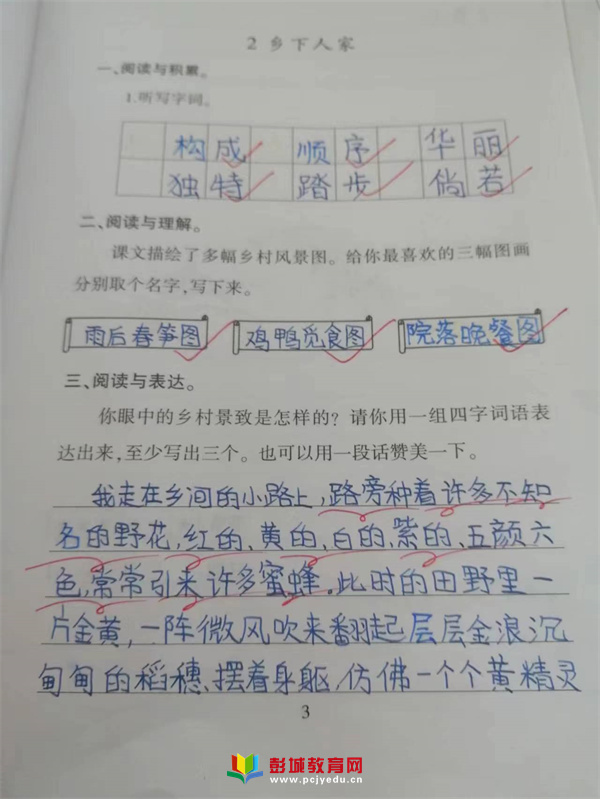 2 乡下人家
一、阅读与积累。
1.听写字词。
构成 顺序 华丽
独特 踏步 倘若
二、阅读与理解。
课文描绘了多幅乡村风景图。给你最喜欢的三幅图画
分别取个名字,写下来。
雨后春笋图 鸡鸭觅食图 院落晚餐图
三、阅读与表达。
你眼中的乡村景致是怎样的?请你用一组四字词语表
达出来,至少写出三个。也可以用一段话赞美一下。
我走在乡间的小路上,路旁种着许多不知
名的野花,红的、黄的、白的、紫的、五颜六
色,常常引来许多蜜蜂。此时的田野里一
片金黄,一阵微风吹来翻起层层金浪沉
甸甸的稻穗、摆着身躯,仿佛一个个黄精灵
3
彭城教育网
www.pcjyedu.cn